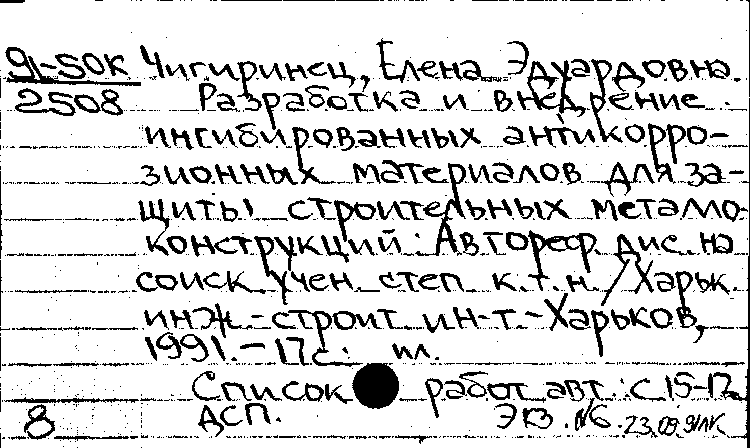 91-50К Чигиринец, Елена Эдуардовна.
2508 Разработка и внедрение
ингибированных антикорро-
зионных материалов для за-
щиты строительных металло-
конструкций : Автореф. дис. на
соиск. учен. степ. к.т.н. / Харьк.
инж.-строит. ин-т. - Харьков,
1991. - 17с. ил.
Список работ авт.: с 15-17.
8 ДСП. Экз. №6. 23.09.91